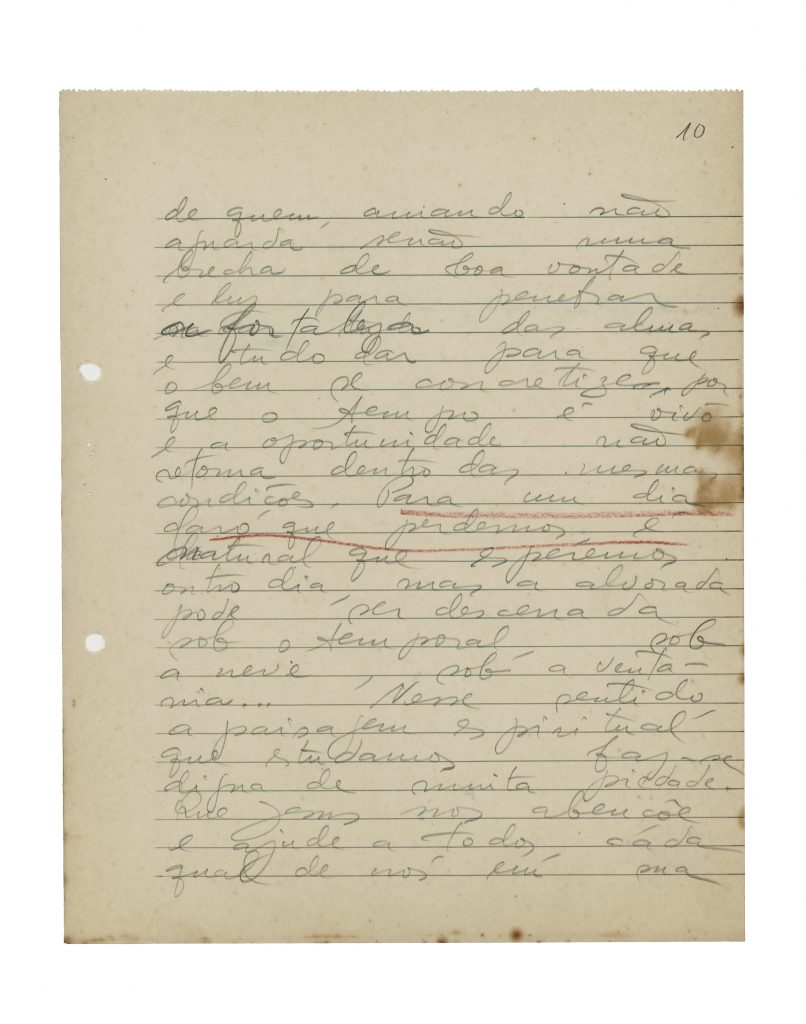 10
de quem, amando não
aguarda senão uma
brecha de boa vontade
e luz para penetrar
a fortaleza das almas,
e tudo dar para que
o bem se concretize, por
que o tempo é vivo
e a oportunidade não
retorna dentro das mesmas
condições. Para um dia
claro que perdemos é
natural que esperemos
outro dia, mas a alvorada
pode ser descerrada
sob o temporal sob
a neve, sob a venta-
nia... Nesse sentido
a paisagem espiritual
que estudamos faz-se
digna de muita piedade.
Que Jesus nos abençõe
e ajude a todos cada
qual de nós em sua